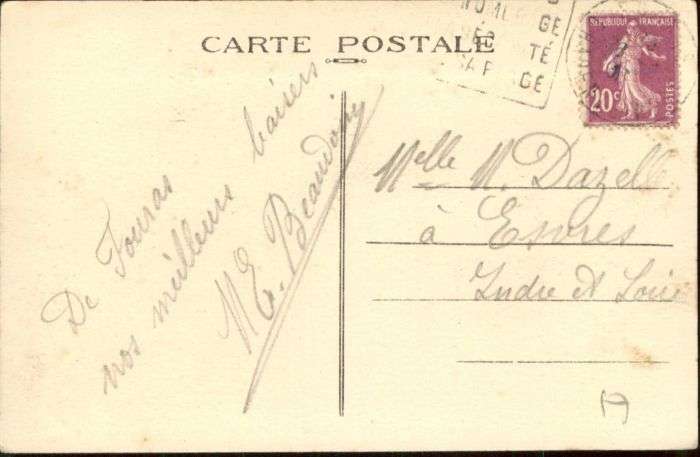 CARTE POSTALE
RÉPUBLIQUE FRANÇAISE
20c
POSTES
GE
TÉ
GE
De Fouras
nos meilleurs baisers
M E. Beaudoin
Melle M. Dazelle
à Esvres
Indre et Loire